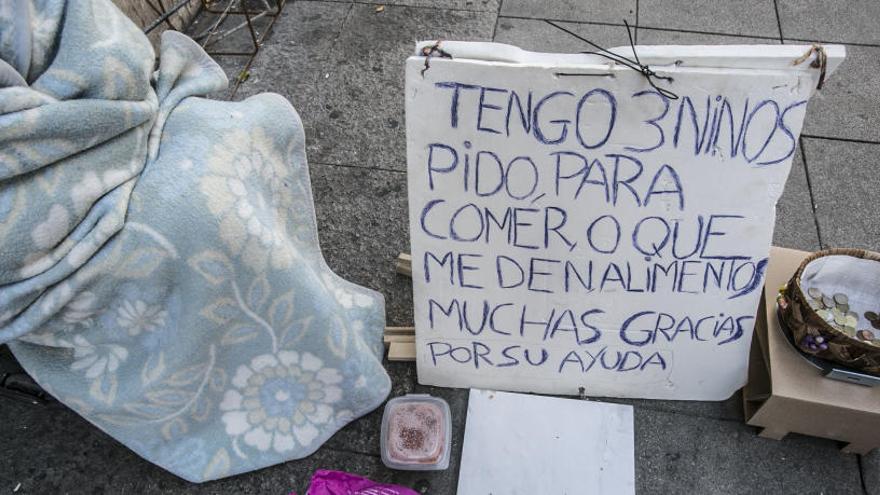 TENGO 3 NIÑOS
PIDO, PARA
COMÉR, O QUE
ME DEN ALIMENTOS
MUCHAS GRACIAS
POR SU AYUDA